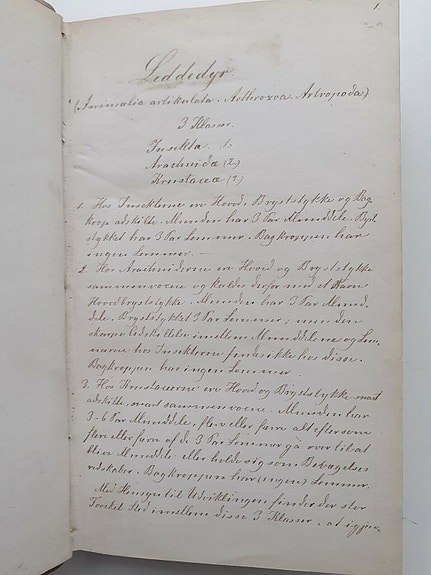 1
Leddedyr
(Animalia artikulata. Arthrozoa. Artropoda)
3 Klasser.
Insekta (1.
Arachnida (2.)
Krustacea (3.)
1. Hos Insekterne ere Hoved, Bryststykke og Bag-
krop adskilte. Munden har 3 Par Munddele. Bryst-
stykket har 3 Par Lemmer. Bagkroppen har
ingen Lemmer. —
2. Hos Arachniderne ere Hoved og Bryststykke
sammenvoxne og kaldes derfor med et Navn
Hovedbryststykke. Munden har 3 Par Mund-
dele. Bryststykket 3 Par Lemmer; men den
skarpe Adskillelse imellem Munddelene og Lem-
merne hos Insekterne findes ikke hos disse.
Bagkroppen har ingen Lemmer.
3. Hos Krustaceerne ere Hoved og Bryststykke snart
adskilte, snart sammenvoxne. Munden har
3-6 Par Munddele, flere eller færre alt eftersom
flere eller færre af de 3 Par Lemmer gå over til at
blive Munddele eller holde sig som Bevægelses
redskaber. Bagkroppen har (ingen) Lemmer.
Med Hensyn til Udviklingen finder der stor
Forskel Sted imellem disse 3 Klasser, at igjen-